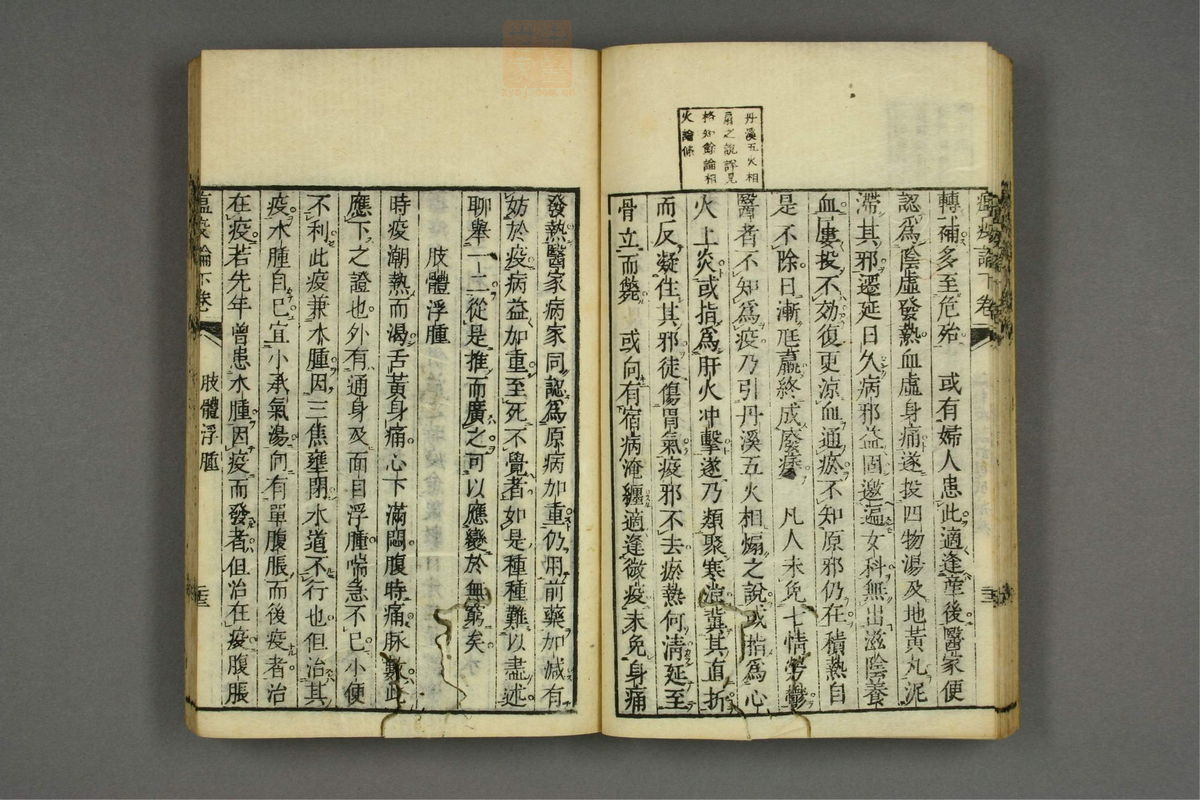 丹溪五火相
扇之說詳見
格知餘論相
火論條
瘟疫論下卷
轉補多至危殆　或有婦人患此適逢產後醫家便
認爲陰虛發熱血虛身痛遂投四物湯及地黃丸泥
滯其邪遷延日久病邪益固邀遍女科無出滋陰養
血屢投不効復更涼血通瘀不知原邪仍在積熱自
是不除日漸尫羸終成廢痿　凡人未免七情勞鬱
醫者不知爲疫乃引丹溪五火相煽之說或指爲心
火上炎或指爲肝火冲擊遂乃類聚寒涼冀其直折
而反凝住其邪徒傷胃氣疫邪不去瘀熱何清延至
骨立而斃　或向有宿病淹纏適逢微疫未免身痛
發熱醫家病家同認爲原病加重仍用前藥加減有
妨於疫病益加重至死不覺者如是種種難以盡述
聊舉一二從是推而廣之可以應變於無窮矣
肢體浮腫
時疫潮熱而渴舌黃身痛心下滿悶腹時痛脉數此
應下之證也外有通身及面目浮腫喘急不已小便
不利此疫兼水腫因三焦壅閉水道不行也但治其
疫水腫自已宜小承氣湯向有單腹脹而後疫者治
在疫若先年曾患水腫因疫而發者但治在疫腹脹
瘟疫論下卷
肢體浮腫